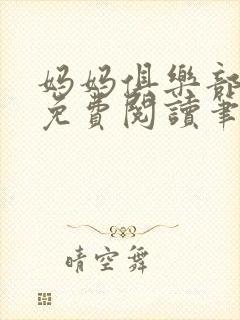 妈妈俱樂部
免費閱讀筆
晴空舞